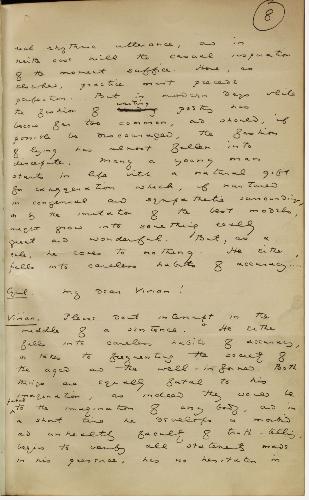 8
real rhythmic utterance, and in
neither case will the casual inspiration
of the moment suffice. Here, as
elsewhere, practice must precede
perfection. But in modern days while
the fashion of writing poetry has
become far too common, and should, if
possible be discouraged, the fashion
of lying has almost fallen into
disrepute. Many a young man
starts in life with a natural gift
for exaggeration which, if nurtured
in congenial and sympathetic surroundings,
or by the imitation of the best models,
might grow into something really
great and wonderful. But, as a
rule, he comes to nothing. He either
falls into careless habits of accuracy....
Cyril My dear Vivian!
Vivian. Please don't interrupt in the
middle of a sentence. He either
falls into careless habits of accuracy,
or takes to frequenting the society of
the aged and the well-informed. Both
things are equally fatal to his
imagination, as indeed they would be
to the imagination of anybody, and in
a short time he develops a morbid
and unhealthy faculty of truth-telling,
begins to verify all statements made
in his presence, has no hesitation in